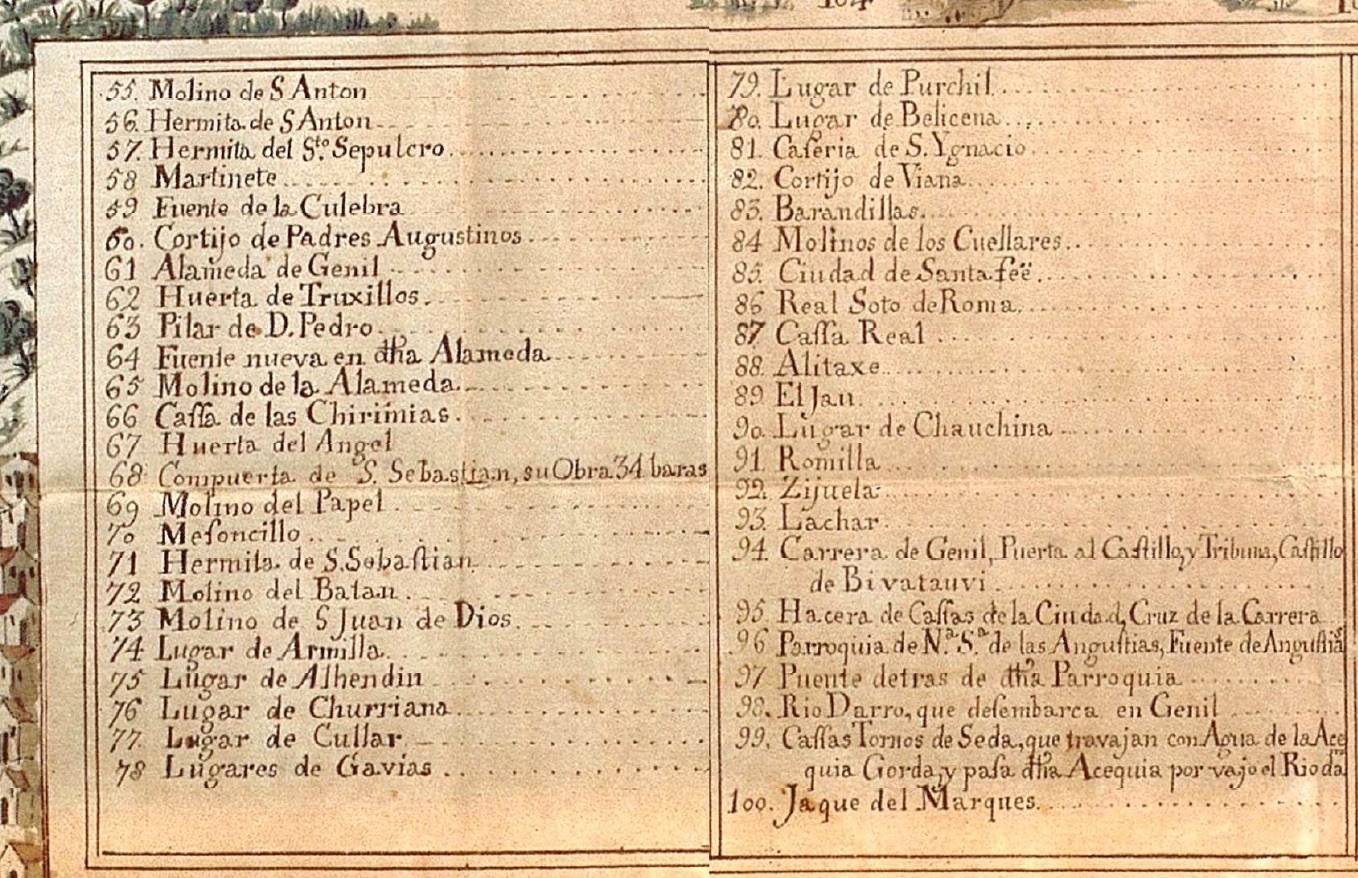 104
55. Molino de S Anton
56. Hermita de S Anton
57. Hermita del Sto. Sepulcro
58 Martinete
59 Fuente de la Culebra
60. Cortijo de Padres Augustinos
61 Alameda de Genil
62 Huerta de Truxillos.
63 Pilar de D. Pedro
64 Fuente nueva en dha Alameda
65 Molino de la Alameda
66 Caſſa de las Chirimias
67 Huerta del Angel
68 Compuerta de S. Sebastian, su Obra 34 baras
69 Molino del Papel
70 Meſoncillo
71 Hermita de S. Sebaſtian
72 Molino del Batan
73 Molino de S Juan de Dios
74 Lugar de Armilla
75 Lugar de Alhendin
76 Lugar de Churriana
77. Lugar de Cullar
78 Lugares de Gavias
79. Lugar de Purchil
80. Lugar de Belicena
81. Caſeria de S. Ygnacio
82. Cortijo de Viana
83. Barandillas
84 Molinos de los Cuellares
85. Ciudad de Santa feë
86 Real Soto de Roma
87 Caſſa Real
88. Alitaxe
89 El Jau
90. Lugar de Chauchina
91. Romilla
92. Zijuela
93. Lachar
94. Carrera de Genil, Puerta al Caſtillo, y Tribuna, Caſtillo
de Bivatauvi
95. Hacera de Caſſas de la Ciudad, Cruz de la Carrera
96 Parroquia de Na. Sa. de las Anguſtias, Fuente de Anguſtias
97 Puente detras de dha Parroquia
98. Rio Darro, que deſembarca en Genil
99. Caſſas Tornos de Seda, que travajan con Agua de la Ace
quia Gorda, y paſa dha Acequia por vajo el Rio
100. Jaque del Marques.